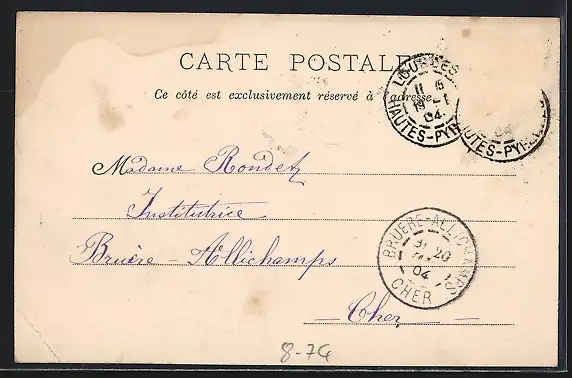 CARTE POSTALE
Ce côté est exclusivement réservé à l'adresse
LOURDES
11 15
19 -1
04
HAUTES-PYR
04
UTES-PYR
Madame Rondet
Institutrice
Bruère - Allichamps
- Cher -
BRUERE-ALLICHAMPS
20
04
CHER
8-74